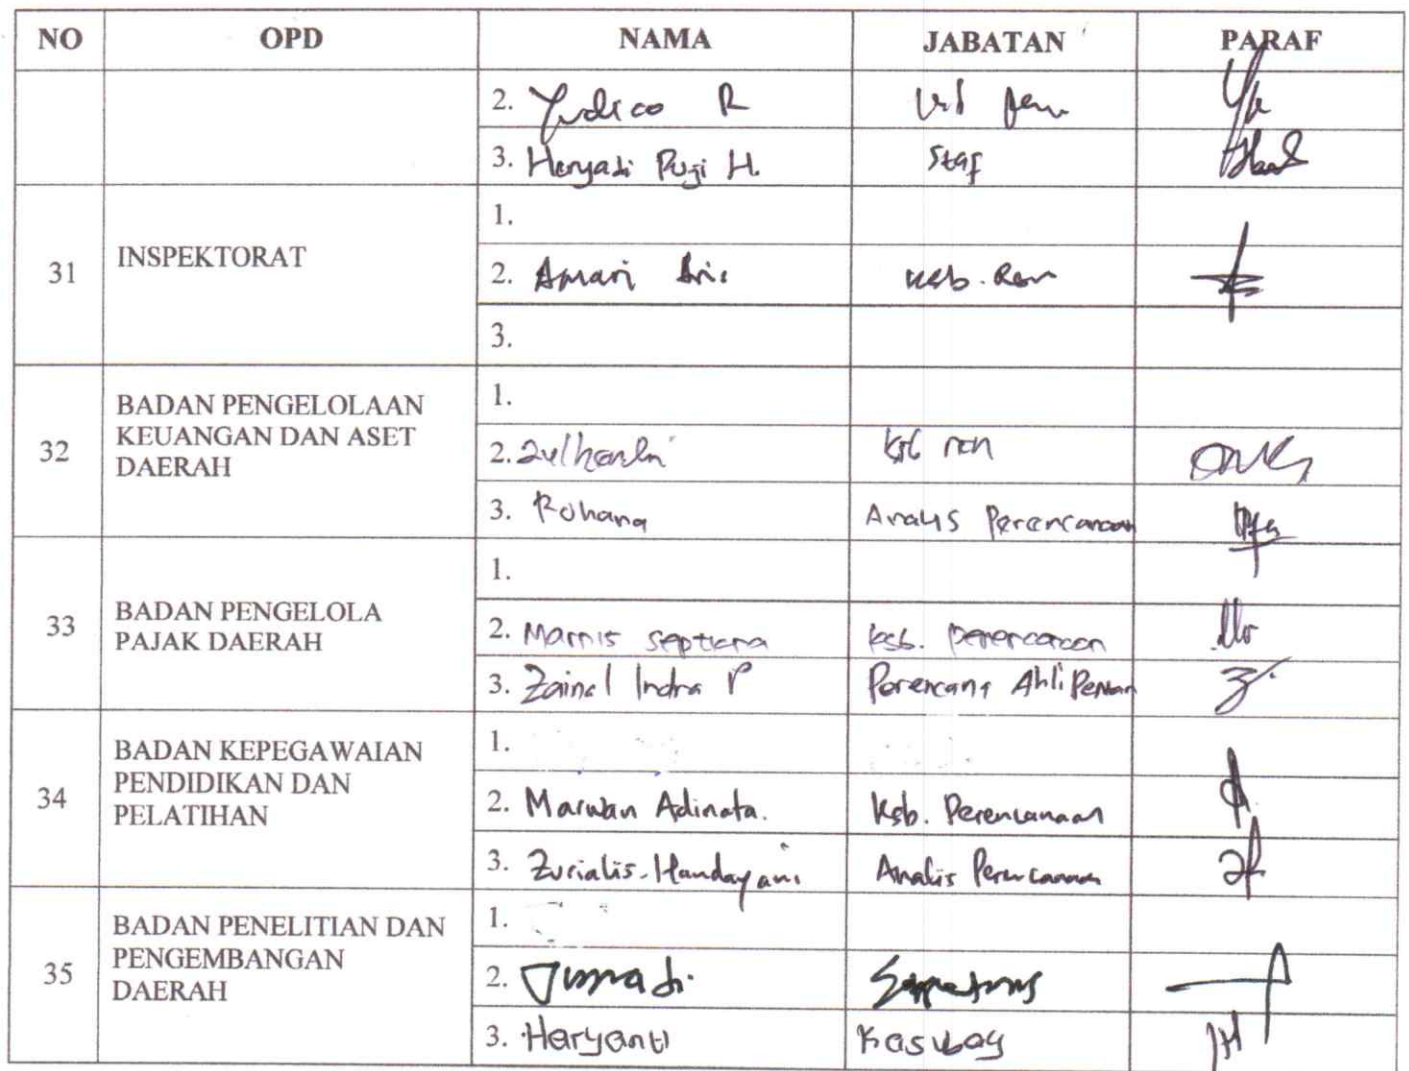 NO OPD NAMA JABATAN PARAF
2. Yudico R
3. Heryadi Puji H. Staf
31 INSPEKTORAT
1.
2. Amari Aris Ksb. Ren
3.
32 BADAN PENGELOLAAN
KEUANGAN DAN ASET
DAERAH
1.
2. Ksb ren
3. Rohana Analis Perencanaan
33 BADAN PENGELOLA
PAJAK DAERAH
1.
2. Marnis Septiana Ksb. perencanaan
3. Zainal Indra P Perencana Ahli
34 BADAN KEPEGAWAIAN
PENDIDIKAN DAN
PELATIHAN
1.
2. Marwan Adinata. Ksb. Perencanaan
3. Zurialis Handayani Analis Perencanaan
35 BADAN PENELITIAN DAN
PENGEMBANGAN
DAERAH
1.
2. Jumadi
3. Haryanti Kasubag